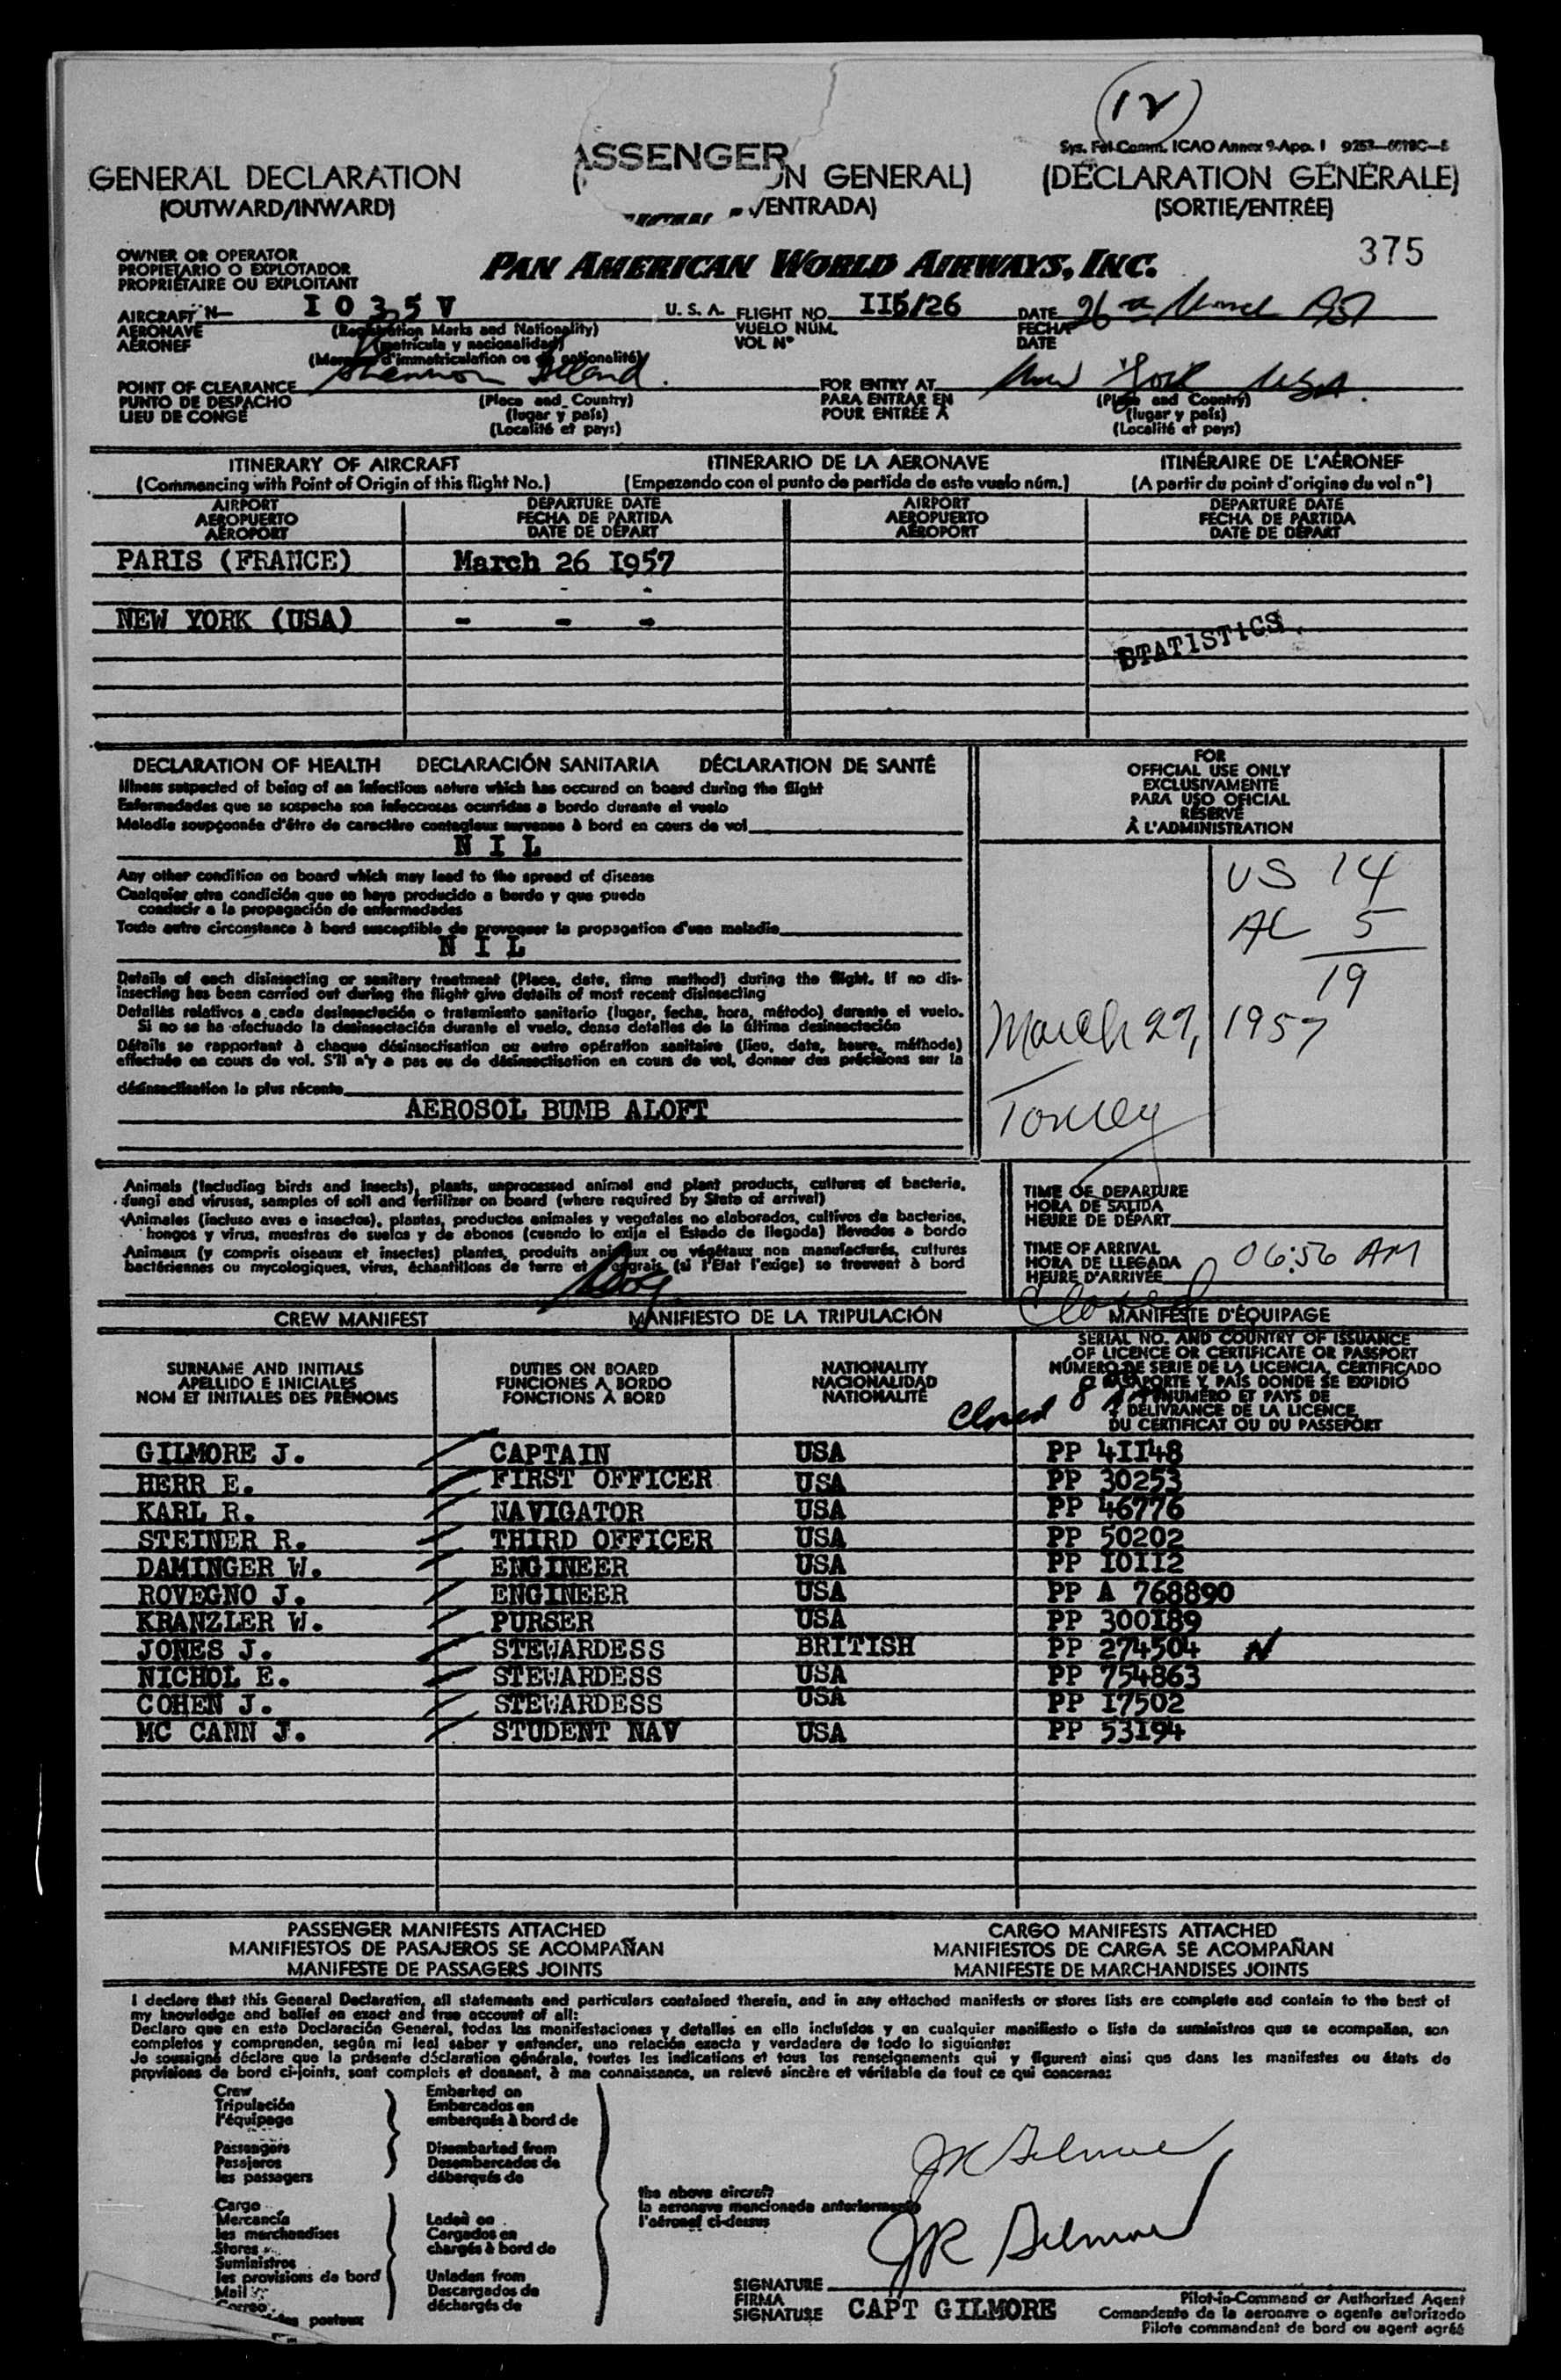 12
Sys. Fel-Comm. ICAO Annex 9-App. I 9253-
ASSENGER
GENERAL DECLARATION
N GENERAL)
(DÉCLARATION GÉNÉRALE)
(OUTWARD/INWARD)
/ENTRADA)
(SORTIE/ENTRÉE)
375
OWNER OR OPERATOR
PROPIETARIO O EXPLOTADOR
PROPRIÉTAIRE OU EXPLOITANT
PAN AMERICAN WORLD AIRWAYS, INC.
AIRCRAFT N- I 0 3 5 V U. S. A. FLIGHT NO. II5/26 DATE 26 March 1957
AERONAVE (Registration Marks and Nationality) VUELO NÚM. FECHA
AÉRONEF (matrícula y nacionalidad) VOL Nº DATE
(Marques d'immatriculation ou de nationalité)
POINT OF CLEARANCE Shannon Ireland FOR ENTRY AT New York USA
PUNTO DE DESPACHO (Place and Country) PARA ENTRAR EN (Place and Country)
LIEU DE CONGÉ (lugar y país) POUR ENTRÉE À (lugar y país)
(Localité et pays) (Localité et pays)
ITINERARY OF AIRCRAFT ITINERARIO DE LA AERONAVE ITINÉRAIRE DE L'AÉRONEF
(Commencing with Point of Origin of this flight No.) (Empezando con el punto de partida de este vuelo núm.) (A partir du point d'origine du vol nº)
AIRPORT DEPARTURE DATE AIRPORT DEPARTURE DATE
AEROPUERTO FECHA DE PARTIDA AEROPUERTO FECHA DE PARTIDA
AÉROPORT DATE DE DÉPART AÉROPORT DATE DE DÉPART
PARIS (FRANCE) March 26 I957
NEW YORK (USA) - - -
STATISTICS
DECLARATION OF HEALTH DECLARACIÓN SANITARIA DÉCLARATION DE SANTÉ
Illness suspected of being of an infectious nature which has occured on board during the flight
Enfermedades que se sospecha son infecciosas ocurridas a bordo durante el vuelo
Maladie soupçonnée d'être de caractère contagieux survenue à bord en cours de vol
N I L
Any other condition on board which may lead to the spread of disease
Cualquier otra condición que se haya producido a bordo y que pueda
conducir a la propagación de enfermedades
Toute autre circonstance à bord susceptible de provoquer la propagation d'une maladie
N I L
Details of each disinsecting or sanitary treatment (Place, date, time method) during the flight. If no dis-
insecting has been carried out during the flight give details of most recent disinsecting
Detalles relativos a cada desinsectación o tratamiento sanitario (lugar, fecha, hora, método) durante el vuelo.
Si no se ha efectuado la desinsectación durante el vuelo, dense detalles de la última desinsectación
Détails se rapportant à chaque désinsectisation ou autre opération sanitaire (lieu, date, heure, méthode)
effectuée en cours de vol. S'il n'y a pas eu de désinsectisation en cours de vol, donner des précisions sur la
désinsectisation la plus récente
AEROSOL BUMB ALOFT
FOR
OFFICIAL USE ONLY
EXCLUSIVAMENTE
PARA USO OFICIAL
RÉSERVÉ
À L'ADMINISTRATION
US 14
AL 5
19
March 27, 1957
Animals (including birds and insects), plants, unprocessed animal and plant products, cultures of bacteria,
fungi and viruses, samples of soil and fertilizer on board (where required by State of arrival)
Animales (incluso aves e insectos), plantas, productos animales y vegetales no elaborados, cultivos de bacterias,
hongos y virus, muestras de suelos y de abonos (cuando lo exija el Estado de llegada) llevados a bordo
Animaux (y compris oiseaux et insectes) plantes, produits animaux ou végétaux non manufacturés, cultures
bactériennes ou mycologiques, virus, échantillons de terre et engrais (si l'État l'exige) se trouvent à bord
Dog
TIME OF DEPARTURE
HORA DE SALIDA
HEURE DE DÉPART
TIME OF ARRIVAL
HORA DE LLEGADA 06:56 AM
HEURE D'ARRIVÉE
Closed
CREW MANIFEST MANIFIESTO DE LA TRIPULACIÓN MANIFESTE D'ÉQUIPAGE
SURNAME AND INITIALS
APELLIDO E INICIALES
NOM ET INITIALES DES PRÉNOMS
DUTIES ON BOARD
FUNCIONES A BORDO
FONCTIONS À BORD
NATIONALITY
NACIONALIDAD
NATIONALITÉ
SERIAL NO. AND COUNTRY OF ISSUANCE
OF LICENCE OR CERTIFICATE OR PASSPORT
NÚMERO DE SERIE DE LA LICENCIA, CERTIFICADO
O PASAPORTE Y PAÍS DONDE SE EXPIDIÓ
NUMÉRO ET PAYS DE
DÉLIVRANCE DE LA LICENCE,
DU CERTIFICAT OU DU PASSEPORT
Closed 8
GILMORE J. CAPTAIN USA PP 4II48
HERR E. FIRST OFFICER USA PP 30253
KARL R. NAVIGATOR USA PP 46776
STEINER R. THIRD OFFICER USA PP 50202
DAMINGER W. ENGINEER USA PP IOII2
ROVEGNO J. ENGINEER USA PP A 768890
KRANZLER W. PURSER USA PP 300I89
JONES J. STEWARDESS BRITISH PP 274504 N
NICHOL E. STEWARDESS USA PP 754863
COHEN J. STEWARDESS USA PP I7502
MC CANN J. STUDENT NAV USA PP 53I94
PASSENGER MANIFESTS ATTACHED CARGO MANIFESTS ATTACHED
MANIFIESTOS DE PASAJEROS SE ACOMPAÑAN MANIFIESTOS DE CARGA SE ACOMPAÑAN
MANIFESTE DE PASSAGERS JOINTS MANIFESTE DE MARCHANDISES JOINTS
I declare that this General Declaration, all statements and particulars contained therein, and in any attached manifests or stores lists are complete and contain to the best of
my knowledge and belief an exact and true account of all:
Declaro que en esta Declaración General, todas las manifestaciones y detalles en ella incluídos y en cualquier manifiesto o lista de suministros que se acompañan, son
completos y comprenden, según mi leal saber y entender, una relación exacta y verdadera de todo lo siguiente:
Je soussigné déclare que la présente déclaration générale, toutes les indications et tous les renseignements qui y figurent ainsi que dans les manifestes ou états de
provisions de bord ci-joints, sont complets et donnent, à ma connaissance, un relevé sincère et véritable de tout ce qui concerne:
Crew Embarked on
Tripulación Embarcados en
l'équipage embarqués à bord de
Passengers Disembarked from
Pasajeros Desembarcados de
les passagers débarqués de
the above aircraft
la aeronave mencionada anteriormente
l'aéronef ci-dessus
Cargo
Mercancía Laden on
les marchandises Cargados en
Stores chargés à bord de
Suministros
les provisions de bord Unladen from
Mail Descargados de
Correo déchargés de
postaux
JR Gilmore
JR Gilmore
SIGNATURE
FIRMA
SIGNATURE CAPT GILMORE
Pilot-in-Command or Authorized Agent
Comandante de la aeronave o agente autorizado
Pilote commandant de bord ou agent agréé